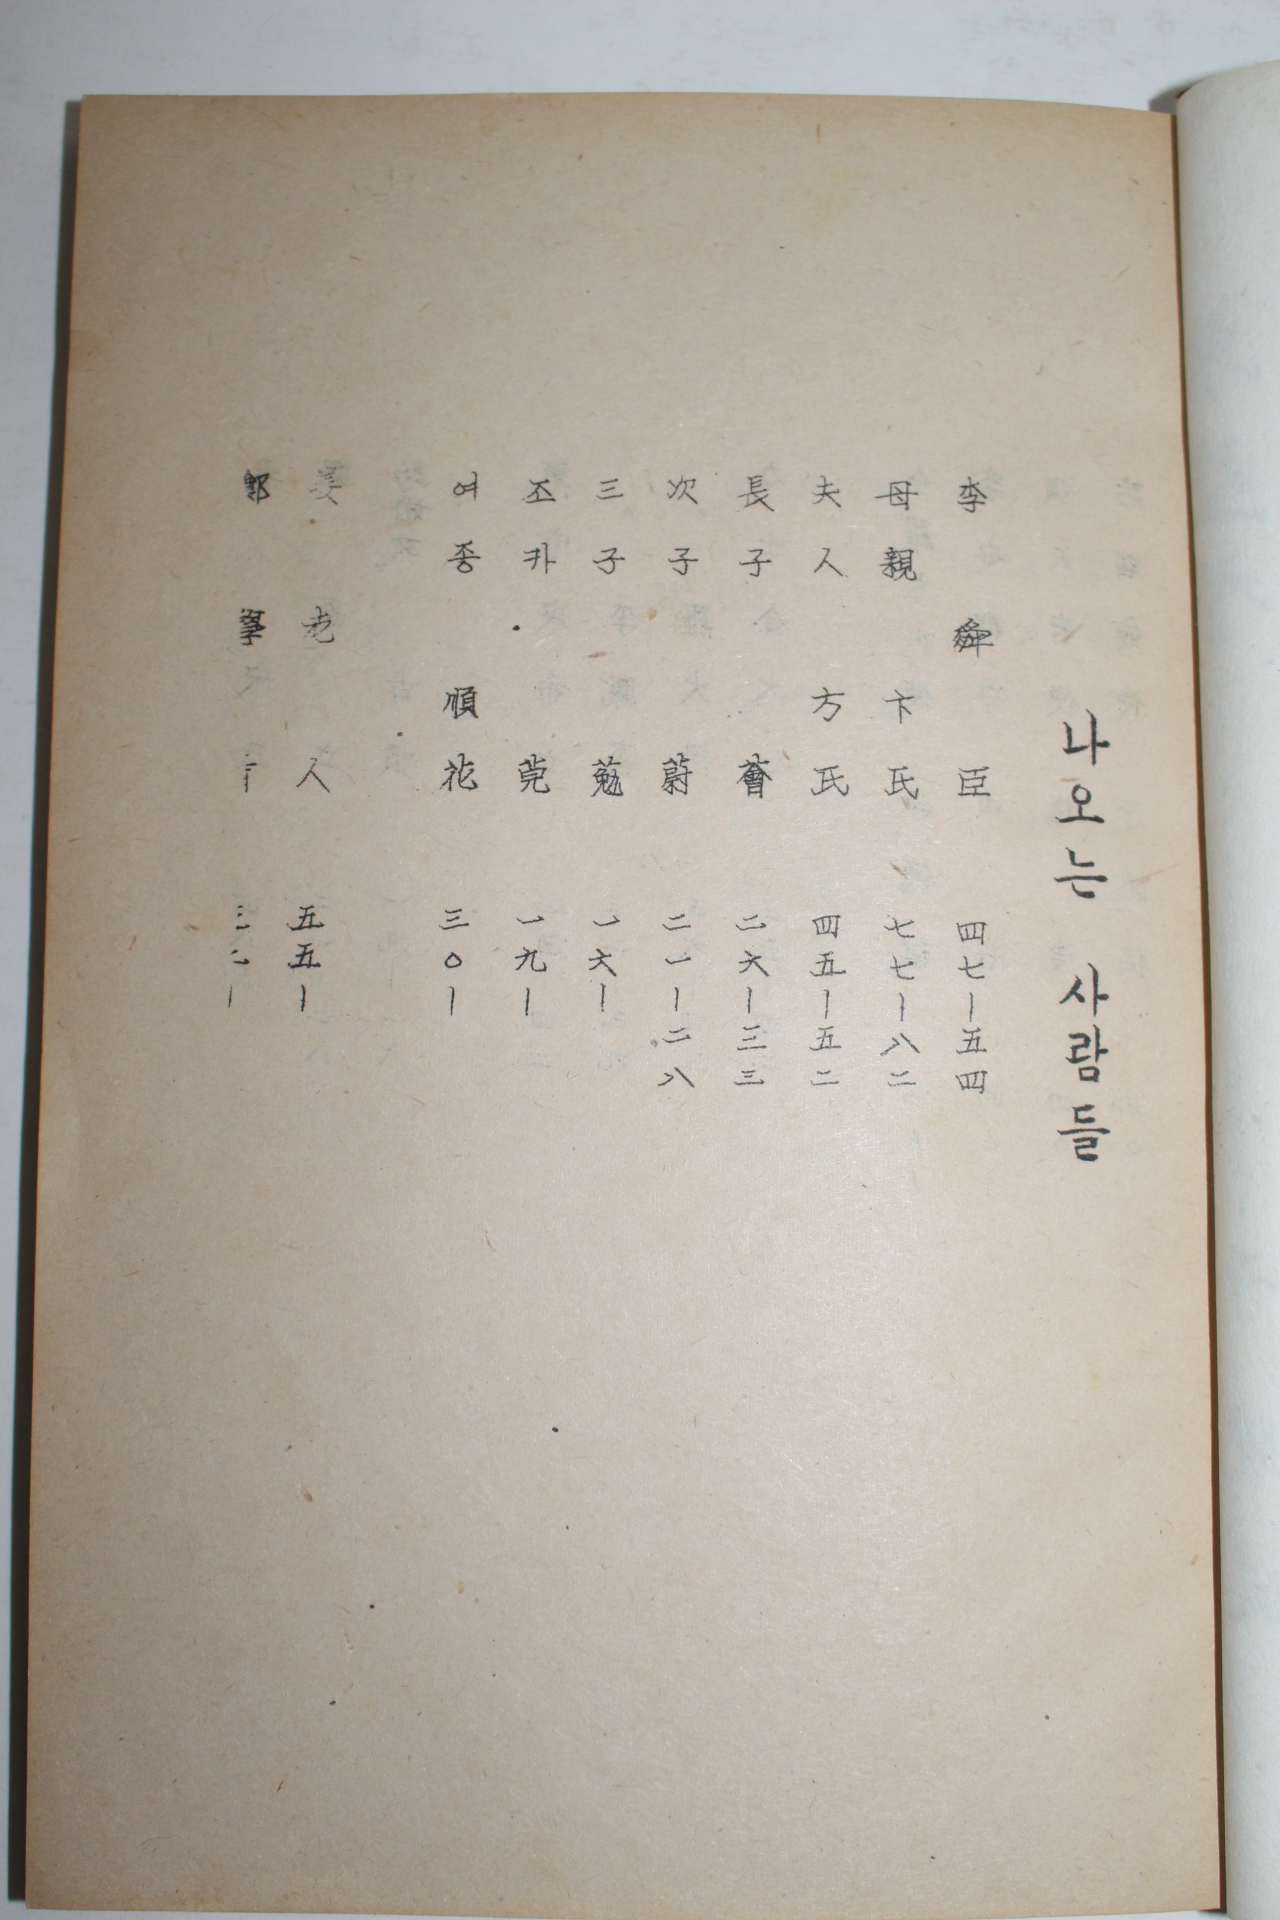 나오는 사람들
李舜臣 四七ー五四
母親 卞氏 七七ー八二
夫人 方氏 四五ー五二
長子 薈 二六ー三三
次子 蔚 二一ー二八
三子 葂 一六ー
조카 莞 一九ー
여종 順花 三〇ー
姜老人 五五ー
郭